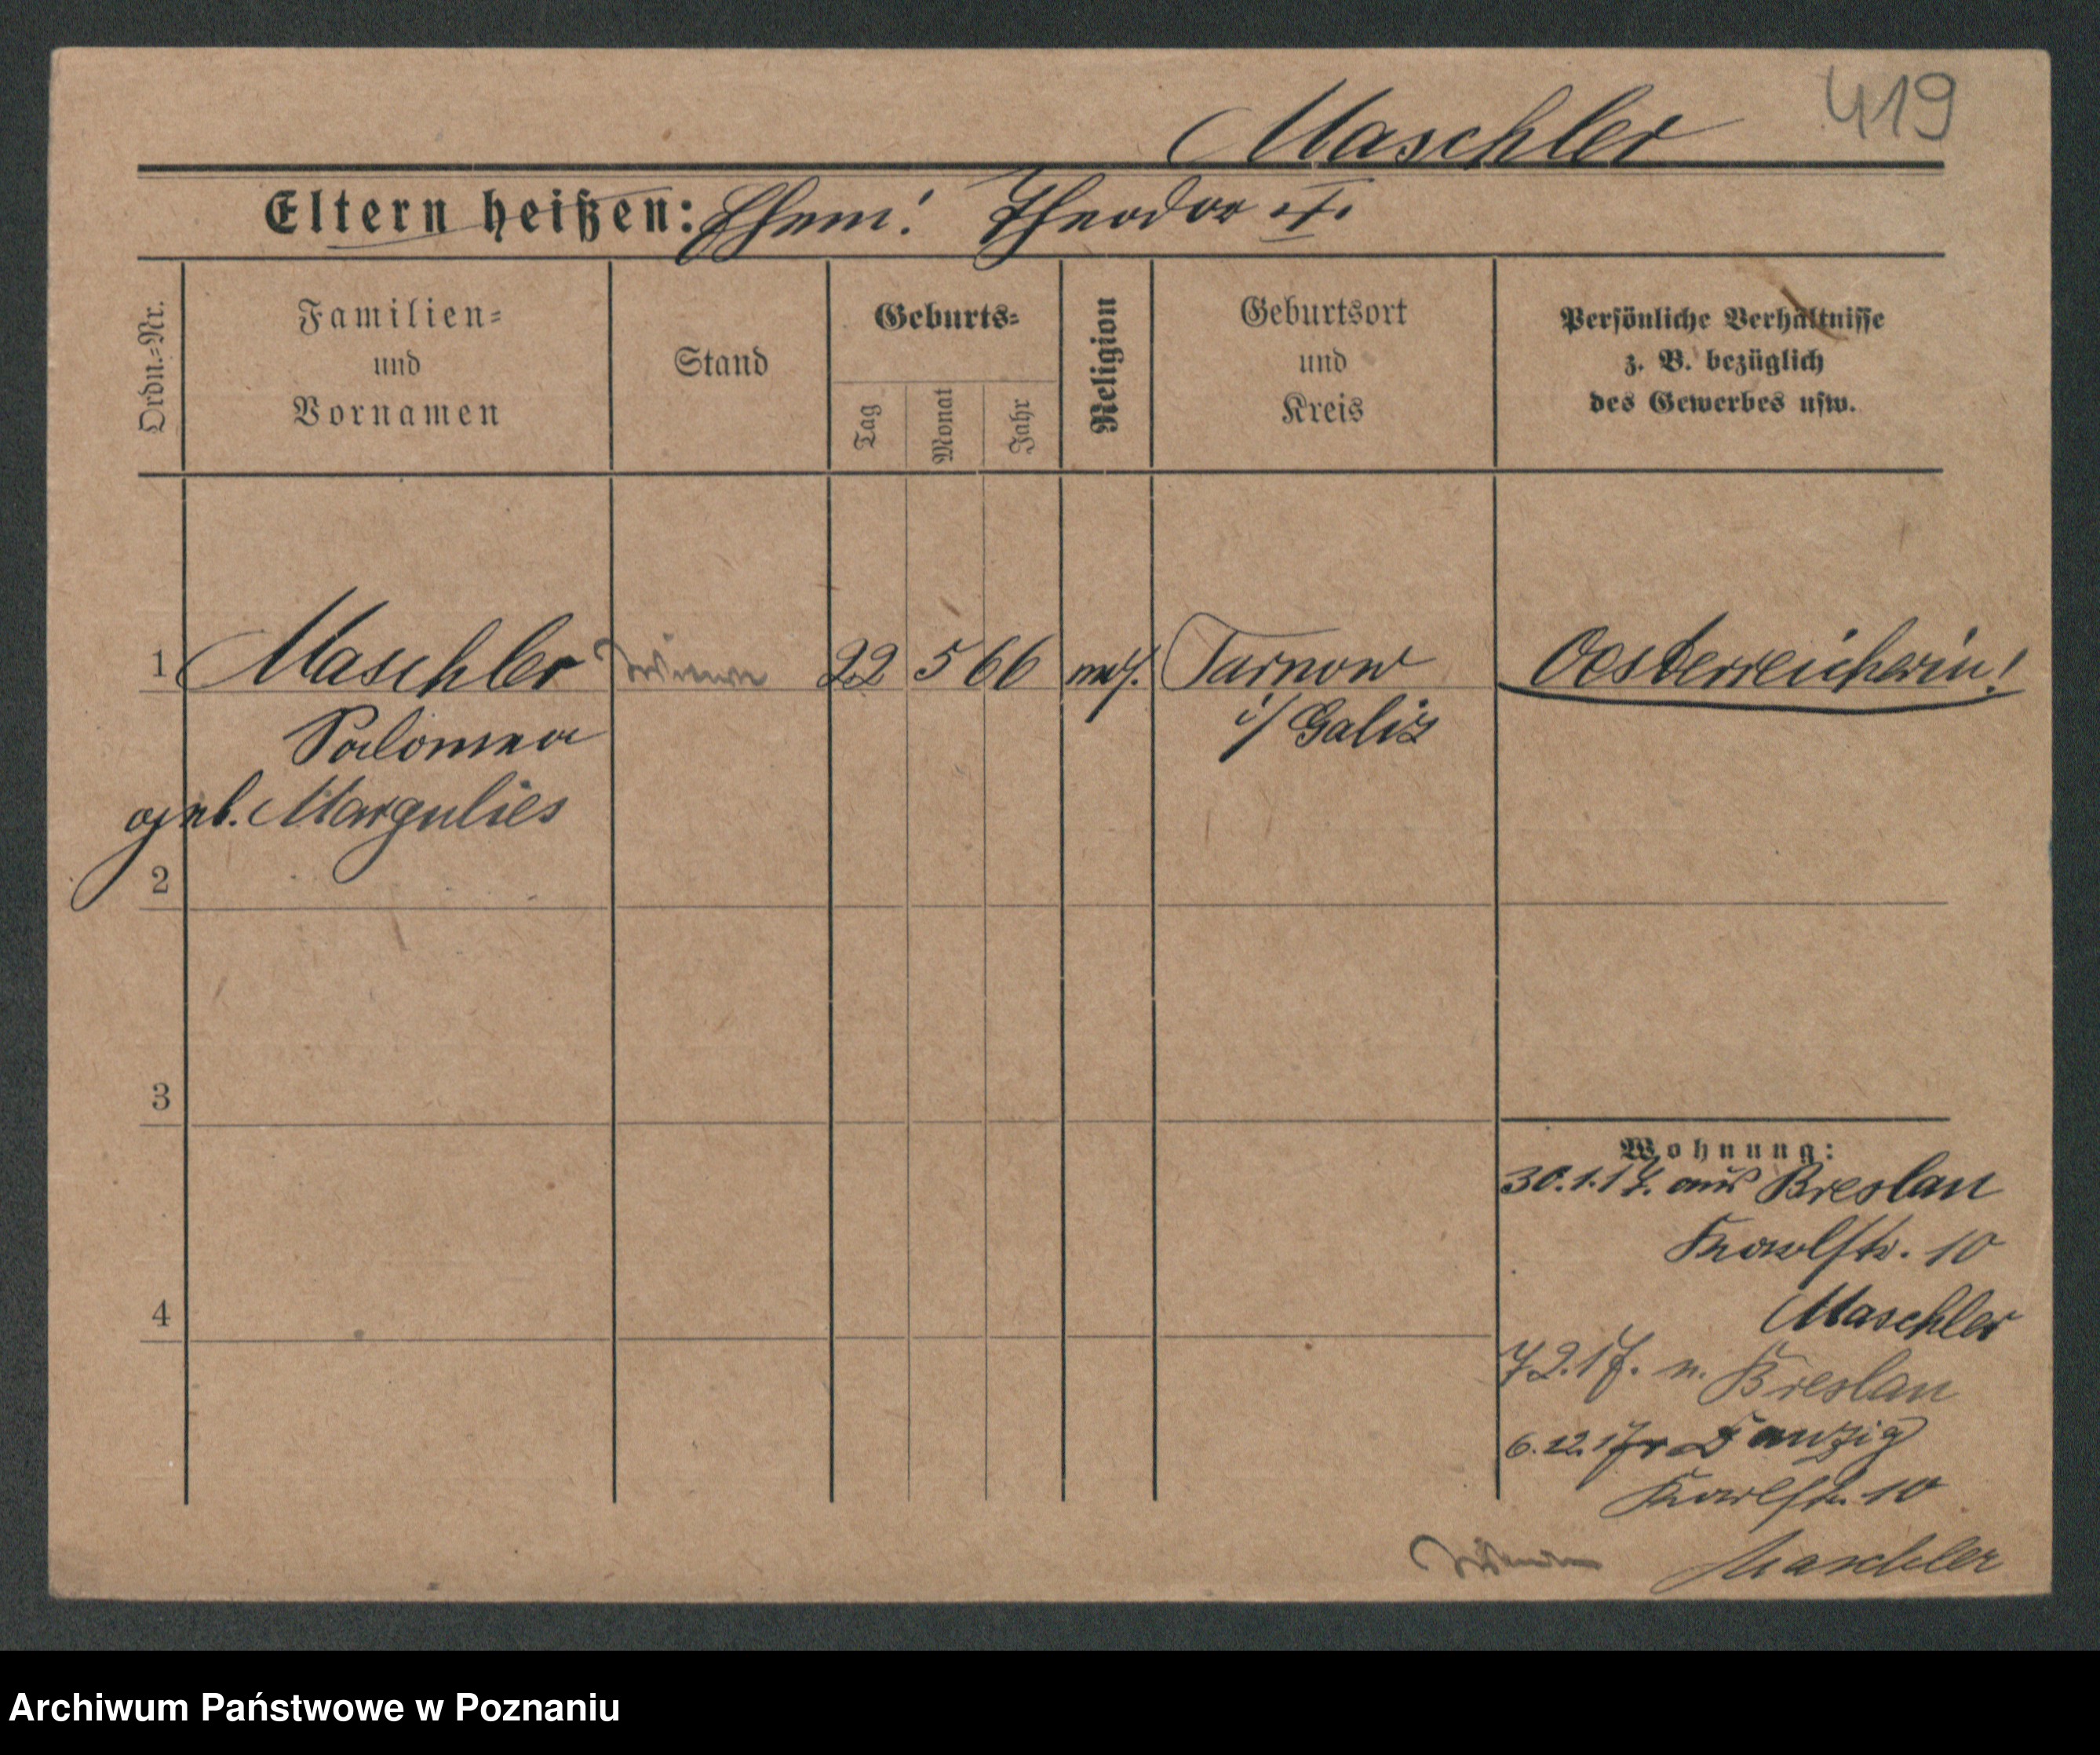 419
Maschler
Eltern heißen: Ehem: Theodor †.
Ordn.=Nr.
Familien=
und
Vornamen
Stand
Geburts=
Tag
Monat
Jahr
Religion
Geburtsort
und
Kreis
Persönliche Verhältnisse
z. B. bezüglich
des Gewerbes usw.
1 Maschler 22 5 66 mos. Tarnow Oesterreicherin!
Salomea i/ Galiz
geb. Margulies
2
3
4
Wohnung:
30.1.17. aus Breslau
Karlstr. 10
Maschler
7.2.17. n. Breslau
6.12.17 Danzig
Karlstr. 10
Maschler
Archiwum Państwowe w Poznaniu